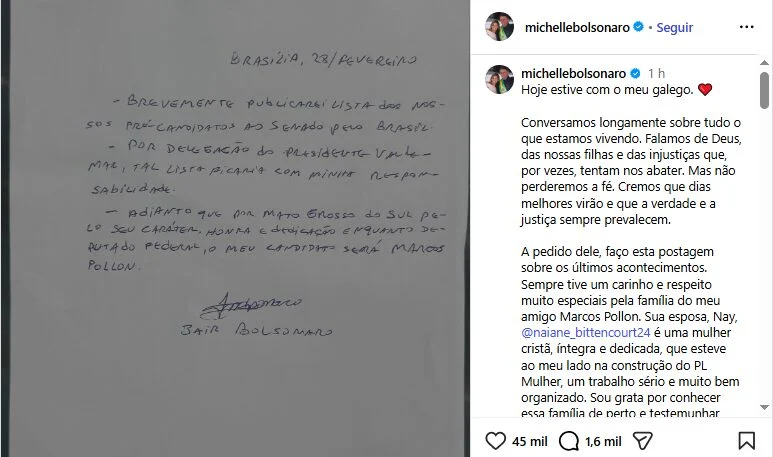 BRASÍLIA, 28/FEVEREIRO
- BREVEMENTE PUBLICAREI LISTA DOS NOS-
SOS PRÉ-CANDIDATOS AO SENADO PELO BRASIL.
- POR DELEGAÇÃO DO PRESIDENTE VALDE-
MAR, TAL LISTA FICARIA COM MINHA RESPON-
SABILIDADE.
- ADIANTO QUE POR MATO GROSSO DO SUL PE-
LO SEU CARÁTER, HONRA E DEDICAÇÃO ENQUANTO DE-
PUTADO FEDERAL, O MEU CANDIDATO SERÁ MARCOS
POLLON.
JAIR BOLSONARO
michellebolsonaro • Seguir
michellebolsonaro 1 h
Hoje estive com o meu galego. ❤️
Conversamos longamente sobre tudo o
que estamos vivendo. Falamos de Deus,
das nossas filhas e das injustiças que,
por vezes, tentam nos abater. Mas não
perderemos a fé. Cremos que dias
melhores virão e que a verdade e a
justiça sempre prevalecem.
A pedido dele, faço esta postagem
sobre os últimos acontecimentos.
Sempre tive um carinho e respeito
muito especiais pela família do meu
amigo Marcos Pollon. Sua esposa, Nay,
@naiane_bittencourt24 é uma mulher
cristã, íntegra e dedicada, que esteve
ao meu lado na construção do PL
Mulher, um trabalho sério e muito bem
organizado. Sou grata por conhecer
essa família de perto e testemunhar
45 mil 1,6 mil